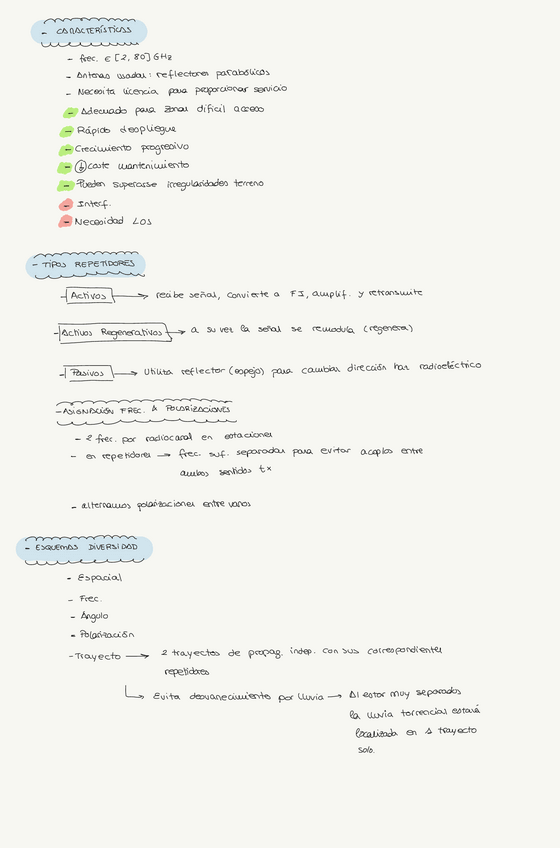 - CARACTERÍSTICAS
- frec. ∈ [2, 80] GHz
- Antenas usadas: reflectores parabólicos
- Necesita licencia para proporcionar servicio
- Adecuado para zonas difícil acceso
- Rápido despliegue
- Crecimiento progresivo
- ↓ coste mantenimiento
- Pueden superarse irregularidades terreno
- Interf.
- Necesidad LOS
- TIPOS REPETIDORES
- Activos → recibe señal, convierte a FI, amplif. y retransmite
- Activos Regenerativos → a su vez la señal se remodula (regenera)
- Pasivos → Utiliza reflector (espejo) para cambiar dirección haz radioeléctrico
- ASIGNACIÓN FREC. & POLARIZACIONES
- 2 frec. por radiocanal en estaciones
- en repetidores → frec. suf. separadas para evitar acoplos entre
ambos sentidos tx
- alternamos polarizaciones entre vanos
- ESQUEMAS DIVERSIDAD
- Espacial
- Frec.
- Ángulo
- Polarización
- Trayecto → 2 trayectos de propag. indep. con sus correspondientes
repetidores
↳ Evita desvanecimiento por lluvia → Al estar muy separados
la lluvia torrencial estará
localizada en 1 trayecto
solo.